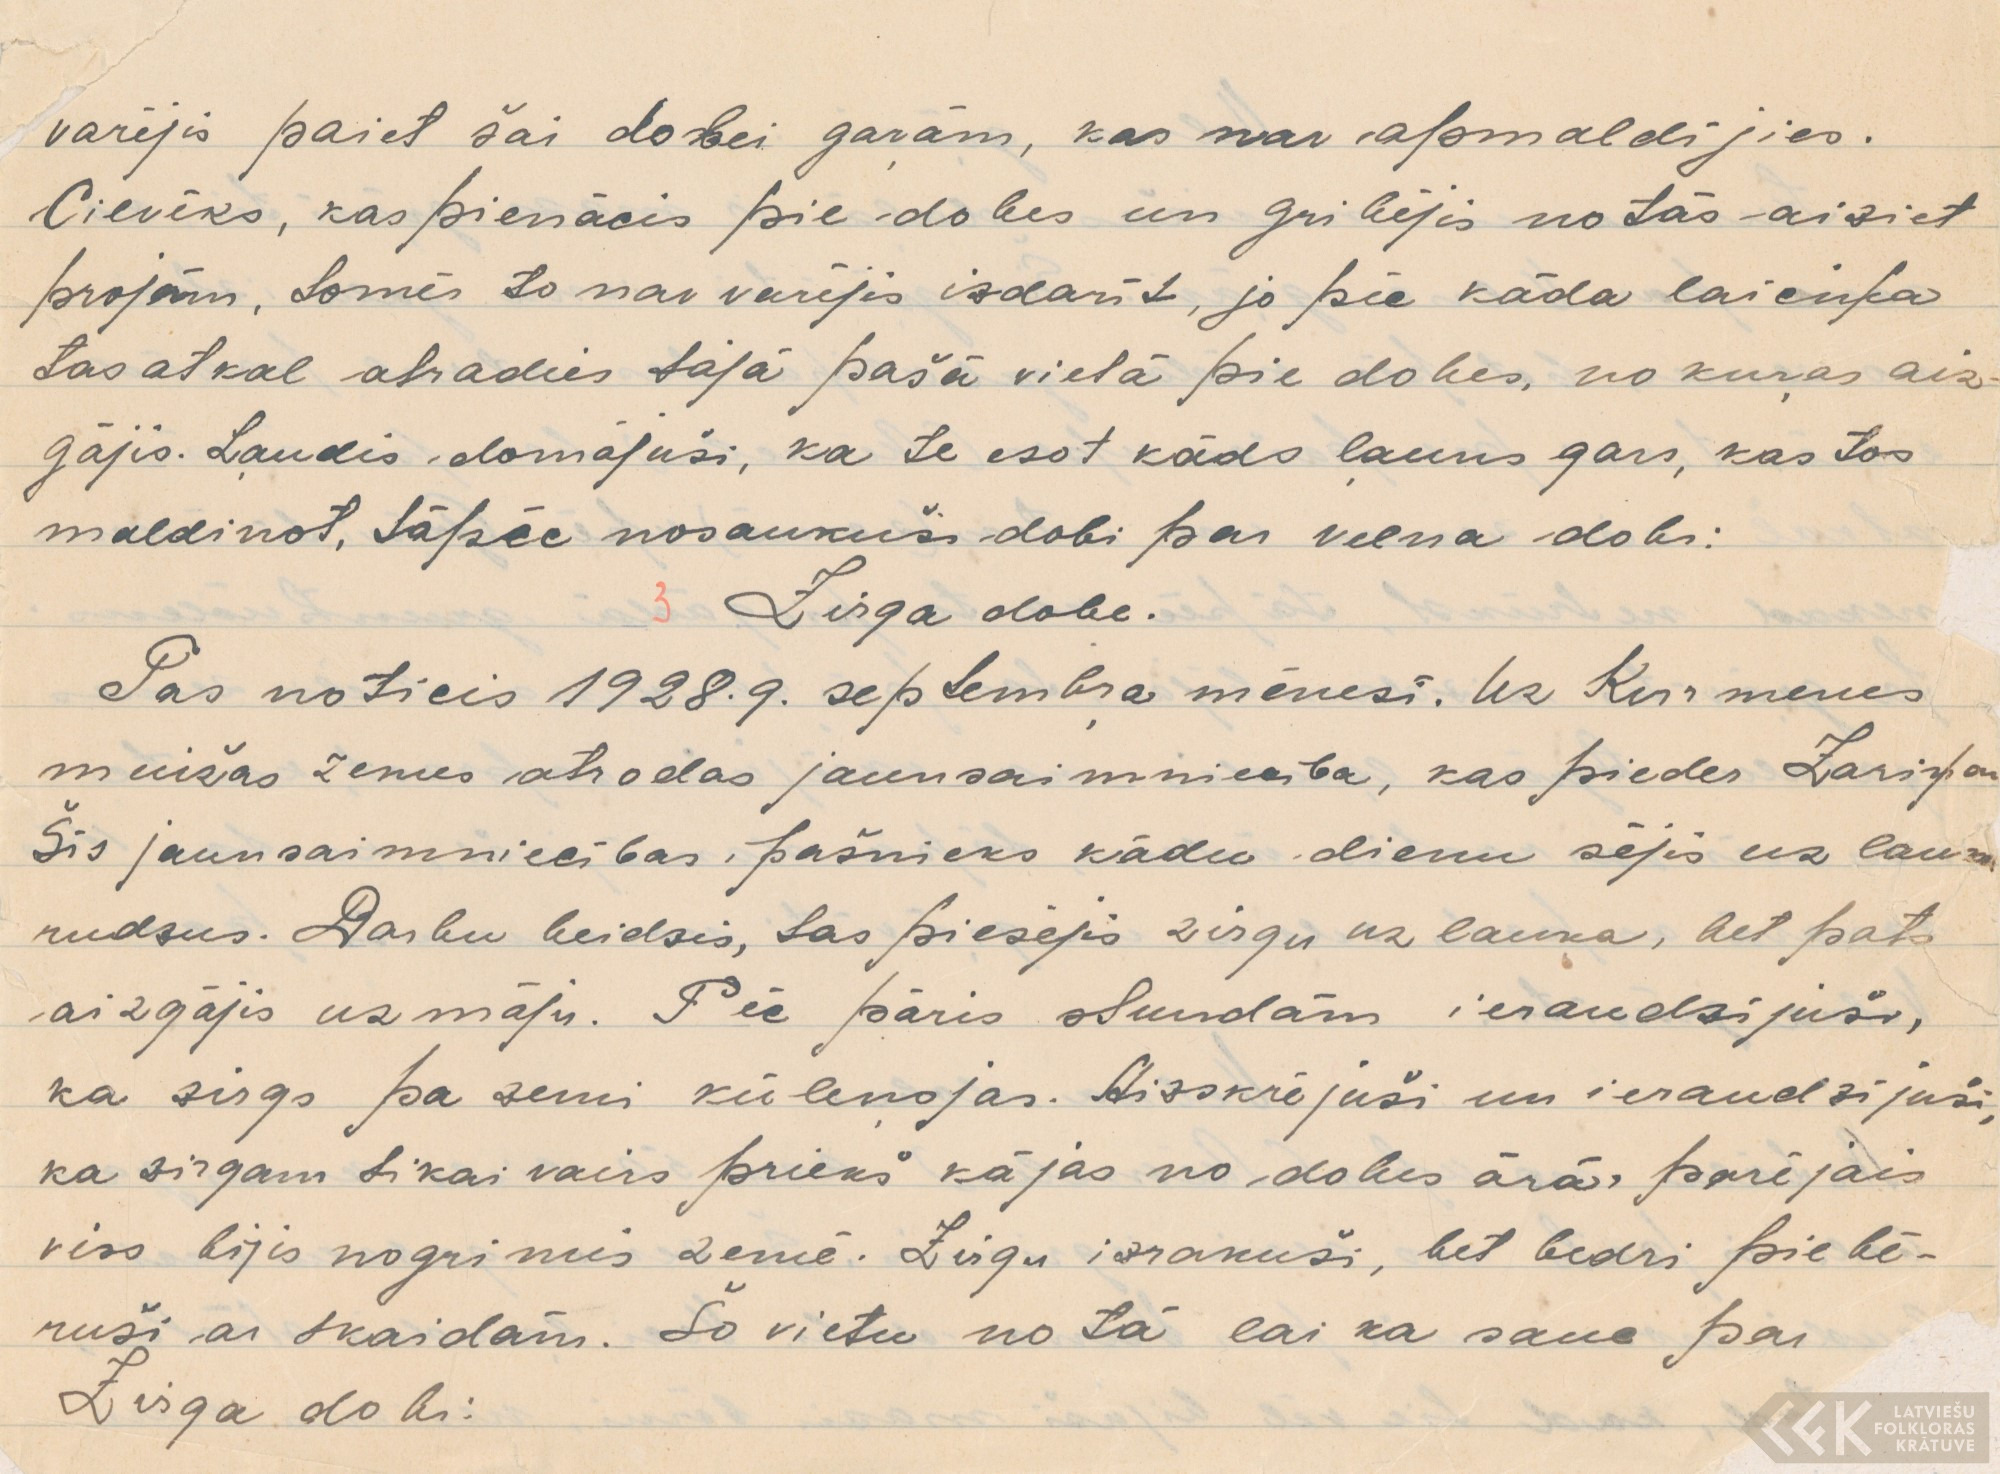 varējis paiet šai dobei gaŗām, kas nav apmaldījies.
Cilvēks, kas pienācis pie dobes un gribējis no tās aiziet
projām, tomēr to nav varējis izdarīt, jo pēc kāda laiciņa
tas atkal atradies tājā pašā vietā pie dobes, no kuŗas aiz-
gājis. Ļaudis domājuši, ka te esot kāds ļauns gars, kas tos
maldinot, tāpēc nosaukuši dobi par velna dobi:
3 Zirga dobe.
Tas noticis 1928.g. septembŗa mēnesī. Uz Kurmenes
muižas zemes atrodas jaunsaimniecība, kas pieder Zariņam
Šīs jaunsaimniecības īpašnieks kādu dienu sējis uz lauka
rudzus. Darbu beidzis, tas piesējis zirgu uz lauka, bet pats
aizgājis uz māju. Pēc pāris stundām ieraudzījuši,
ka zirgs pa zemi kūleņojas. Aizskrējuši un ieraudzījuši,
ka zirgam tikai vairs priekš kājas no dobes ārā, pārējais
viss bijis nogrimis zemē. Zirgu izrakuši, bet bedri piebē-
ruši ar skaidām. Šo vietu no tā laika sauc par
Zirga dobi:
LATVIEŠU
FOLKLORAS
KRĀTUVE